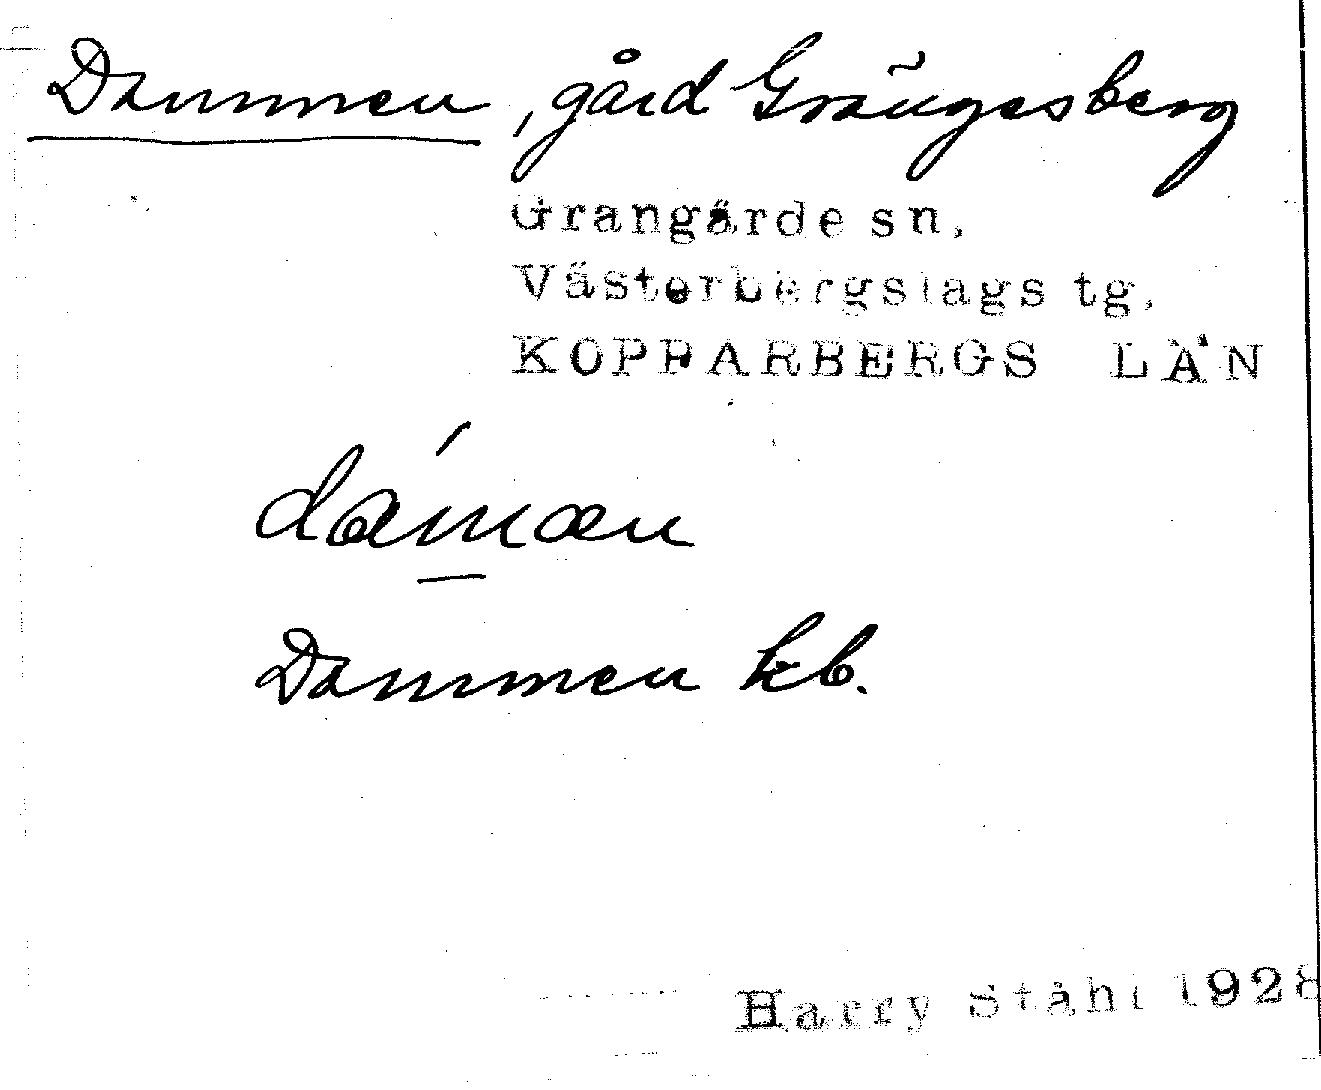 Dammen, gård Grängesberg
Grangärde sn,
Västerbergslags tg,
KOPPARBERGS LÄN
dámæn
Dammen kb.
Harry Ståhl 1928